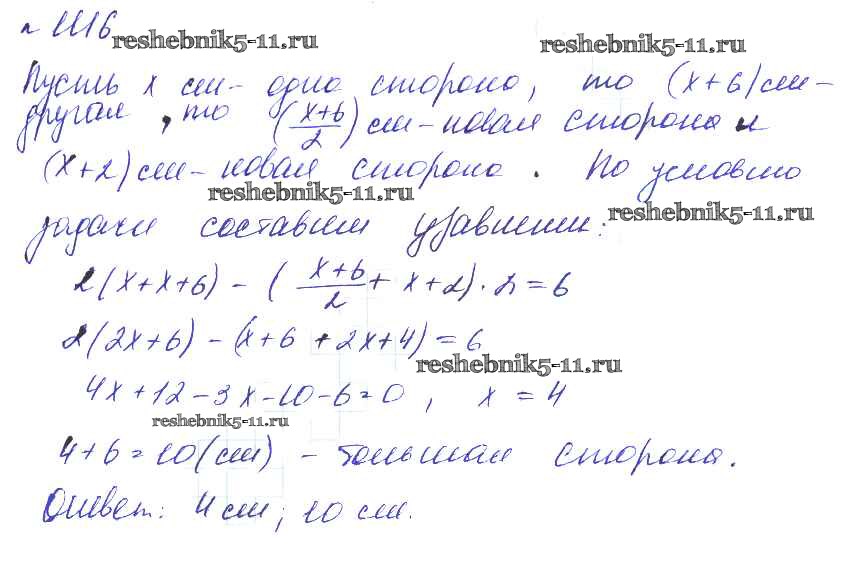 № 1116
reshebnik5-11.ru reshebnik5-11.ru
Пусть x см - одна сторона, то (x+6) см -
другая, то (x+6/2) см - новая сторона и
(x+2) см - новая сторона. По условию
reshebnik5-11.ru reshebnik5-11.ru
задачи составим уравнение:
2(x+x+6) - (x+6/2 + x+2)·2=6
2(2x+6) - (x+6+2x+4)=6
reshebnik5-11.ru
4x+12-3x-10-6=0, x=4
reshebnik5-11.ru
4+6=10(см) - большая сторона.
Ответ: 4 см; 10 см.